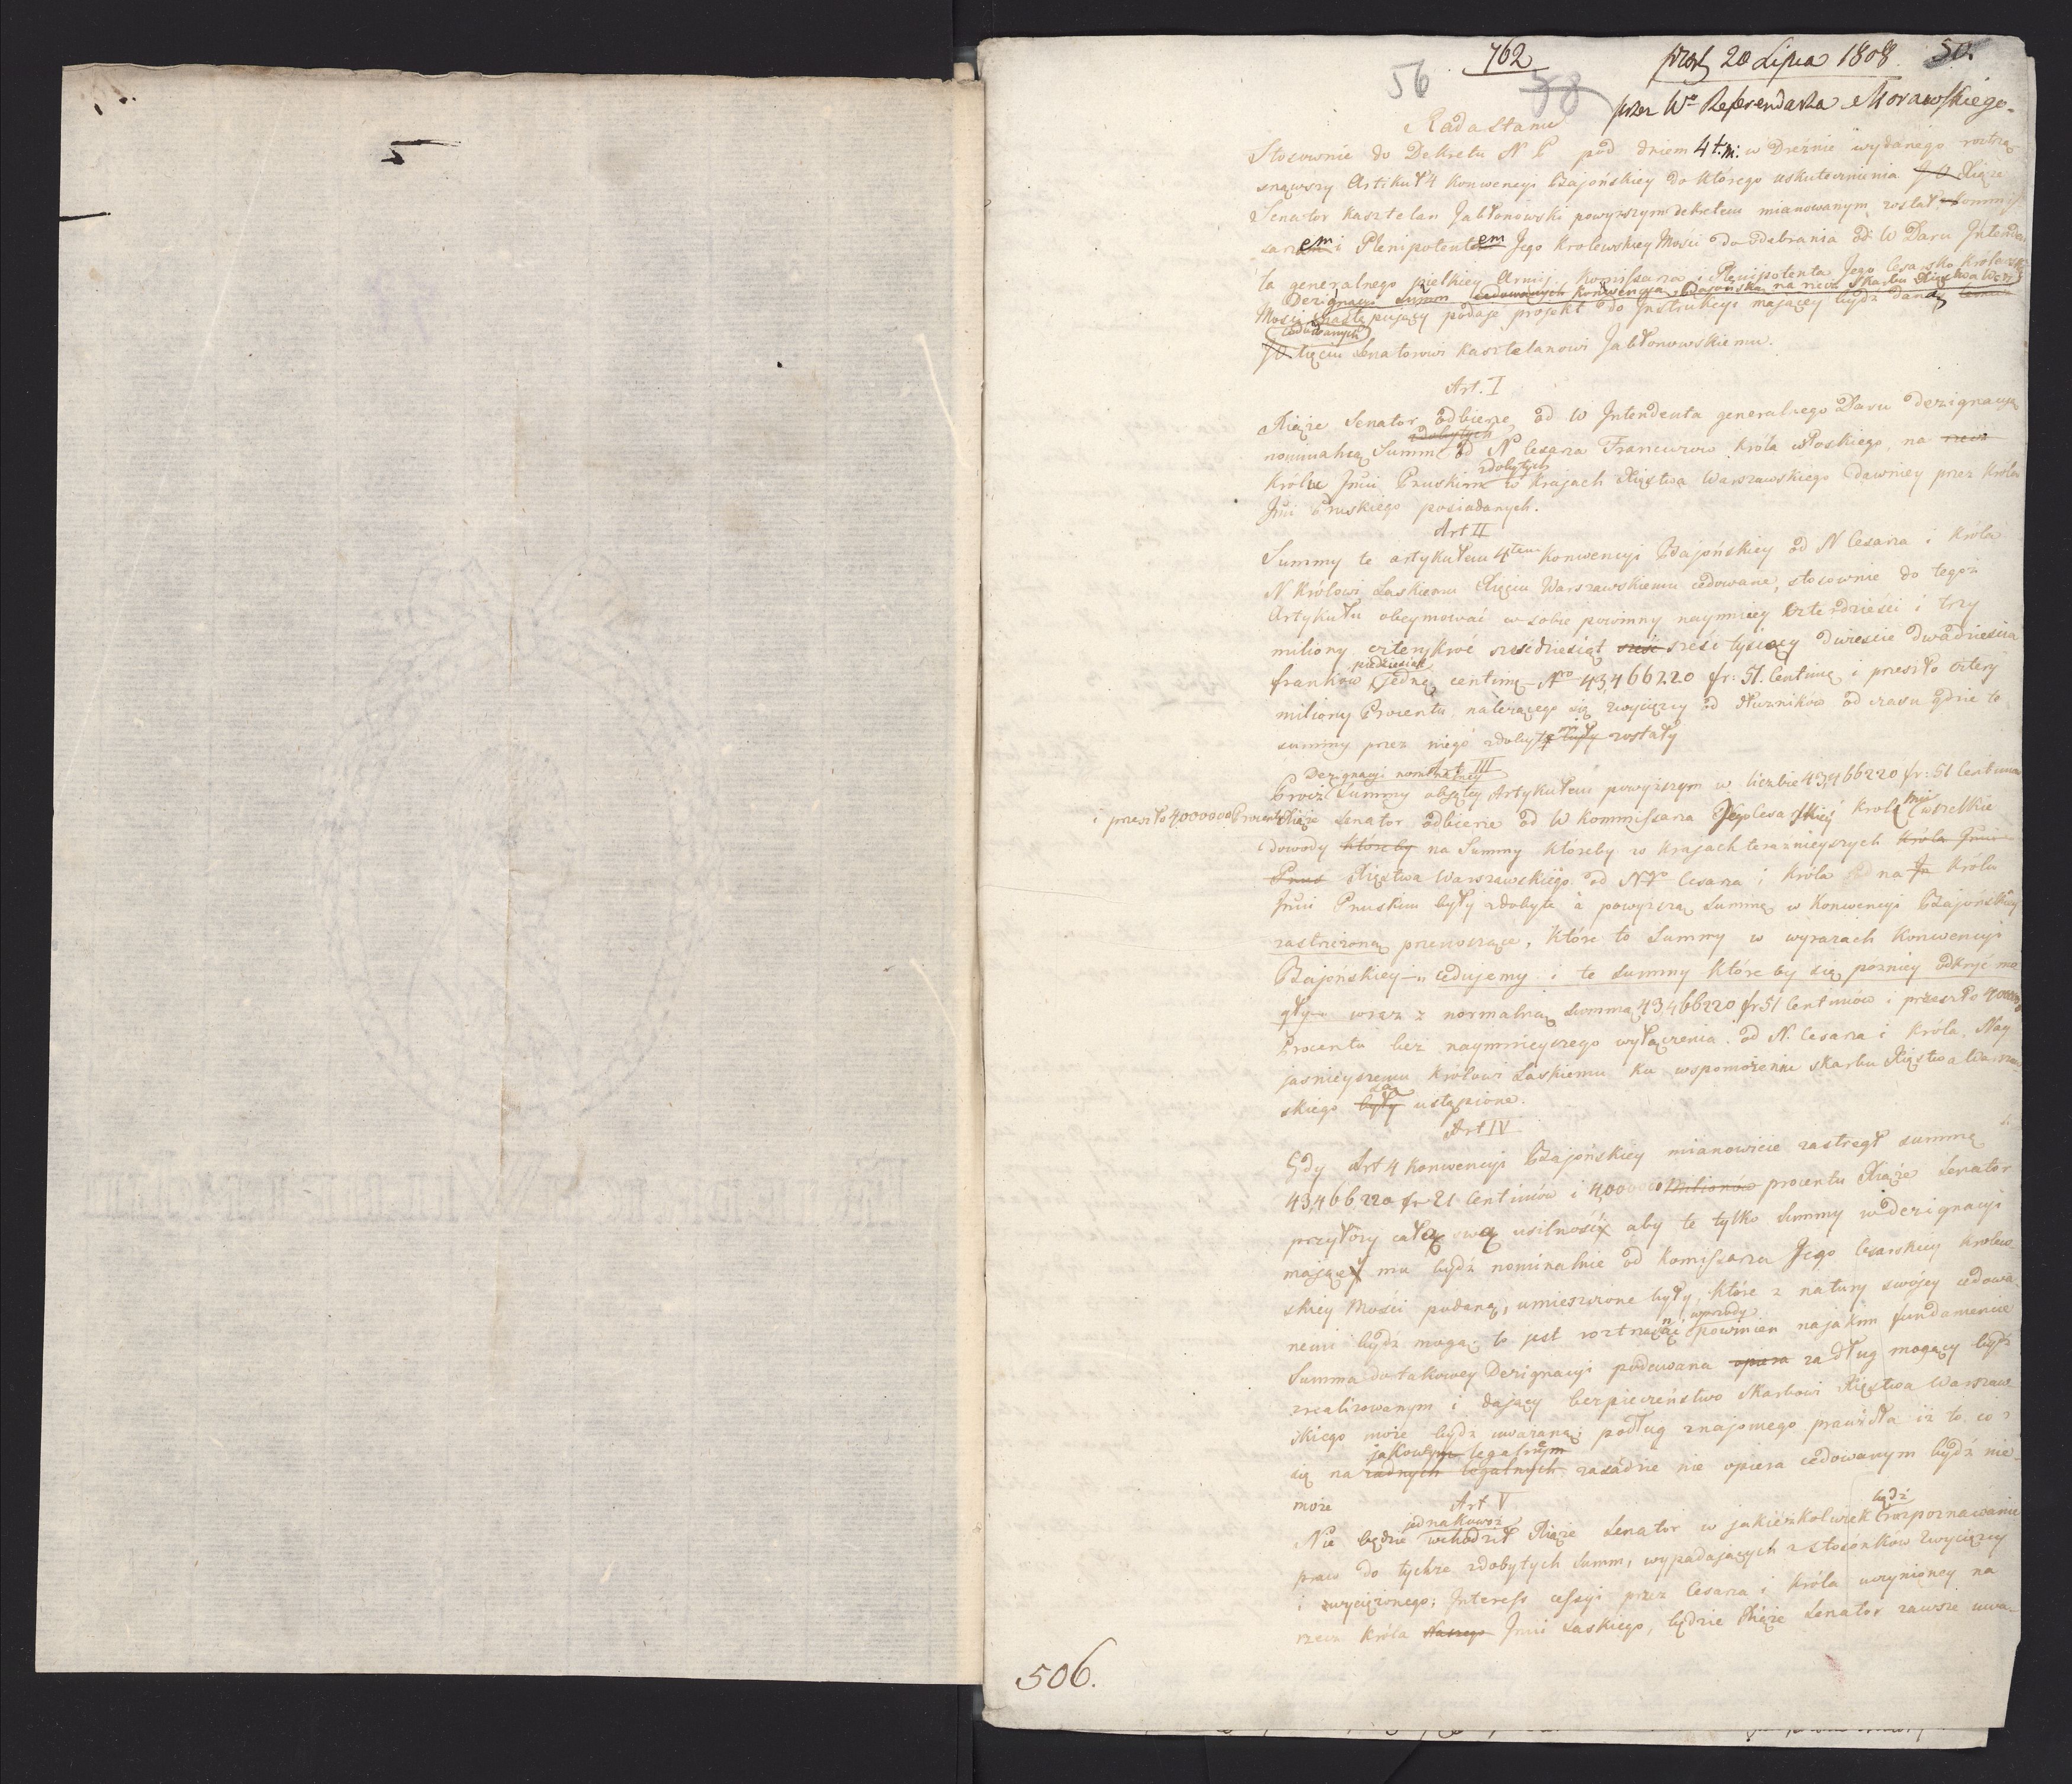 5
762
56
58
50.
20 Lipca 1808
przez Wo Referendarza Morawskiego.
Rada Stanu
Stosownie do Dekretu N P pod dniem 4 t. m. w Dreźnie wydanego roztrzą
snąwszy Artikuł 4 Konwencyi Bajońskiey do którego uskutecznienia J O Xiąże
Senator Kasztelan Jabłonowski powyższym dekretem mianowanym został Kommis
sarzem i Plenipotentem Jego Krolewskiey Mości do odebrania od W Daru Intenden
ta generalnego wielkiey Armij, Komissarza i Plenipotenta Jego Cesarsko Krolewskiey
Dezignacyi summ cedowanych Konwencyą Bajońską na rzecz Skarbu Xięstwa Warsz
Mości następujący podaje projekt do Instrukcyi mającey bydź daną
cedowanych
J O Xięciu Senatorowi Kasztelanowi Jabłonowskiemu.
Art. I
Xiąże Senator odbierze od W Intendenta generalnego Daru dezignacyą
zdobytych
nominalną Summ od N Cesarza Francuzow Króla włoskiego, na rzecz
zdobytych
Królu Jmci Pruskim w krajach Xięstwa Warszawskiego dawniey przez Króla
Jmci Pruskiego posiadanych.
Art II
Summy te artykułem 4tem Konwencyi Bajońskiey od N Cesarza i Króla
N. Królowi Saskiemu Xięciu Warszawskiemu cedowane, stosownie do tegoż
Artykułu obeymować w sobie powinny naymniey czterdzieści i trzy
miliony czterykroć sześćdziesiąt sześć sześć tysięcy dwieście dwadzieścia
piędziesiąt
frankow jedną centimę Nro 43,466220 fr: 51. Centimę i przeszło cztery
miliony Procentu należącego się zwycięzcy od dłużników od czasu gdzie te
summy przez niego zdobyte były zostały
Art III
Dezignacyi nominalney
Procz Summy objętey Artykułem powyższym w liczbie 43,466220 fr: 51 Centimów
i przeszło 4000000 Procentu Xiąże Senator odbierze od W Kommissarza Jego Cesarskiey Krola Mci wszelkie
dowody któreby na Summy któreby w krajach teraznieyszych Króla Jmci
Prus Xięstwa Warszawskiego od N Cesarza i Króla na Królu
Jmci Pruskim były zdobyte a powyższą Summę w Konwencyi Bajońskiey
zastrzeżoną przenoszące, które to Summy w wyrazach Konwencyi
Bajońskiey „cedujemy i te summy które by się pozniey odkryć mo
gły" wraz z normalną Summą 43,466220 fr 51 Centimów i przeszło 4000000
Procentu bez naymnieyszego wyłączenia od N. Cesarza i Króla Nay
jasnieyszemu Królowi Saskiemu ku wspomożeniu skarbu Xięstwa Warszaw
są
skiego były ustąpione.
Art IV
Gdy Art 4 Konwencyi Bajońskiey mianowicie zastrzegł summę
43,466,220 fr 21 Centimów i 4,000000 Milionów procentu Xiąże Senator
przyłoży całą swą usilność aby te tylko Summy w dezignacyi
mającey mu bydź nominalnie od Komissarza Jego Cesarskiey Krolew
skiey Mości podaną, umieszczone były, które z natury swojey cedowa
wprzódy
nemi bydź mogą; to jest roztrząsać powinien na jakim fundamencie
Summa do takowey Dezignacyi podawana opiera za dług mogący bydź
zrealizowanym i dający bezpieczeństwo Skarbowi Xięstwa Warszaw
skiego może bydź uważaną; podług znajomego prawidła iż to co
jakowym legalnym
się na żadnych legalnych zasadzie nie opiera cedowanym bydź nie
może
Art V
jednakowoż
bydź
Nie będzie wchodził Xiąże Senator w jakieżkolwiek rozpoznawanie
praw do tychże zdobytych Summ, wypadających z stosónków zwycięzcy
i zwyciężonego; Interess cessyi przez Cesarza i Króla uczynioney na
rzecz Króla Naszego Jmci Saskiego, będzie Xiąże Senator zawsze uwa-
506.